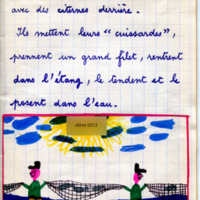 avec des citernes derrière.
Ils mettent leurs "cuissardes",
prennent un grand filet, rentrent
dans l'étang, le tendent et le
posent dans l'eau.